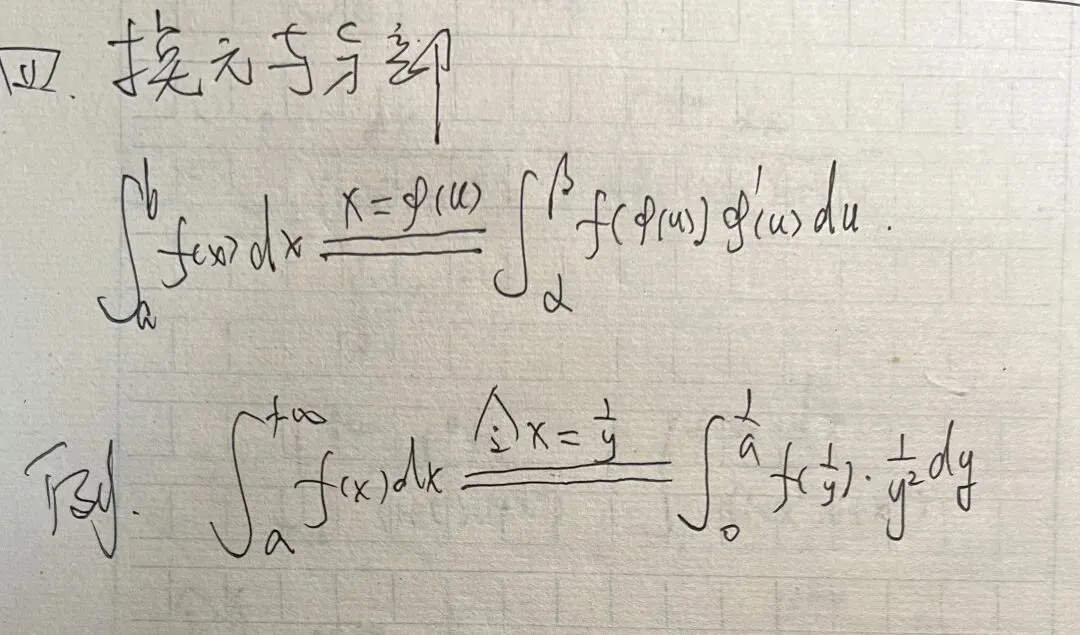 四. 换元与分部
∫_a^b f(x) dx \xlongequal{x = φ(u)} ∫_α^β f(φ(u)) φ'(u) du.
例. ∫_a^{+∞} f(x) dx \xlongequal{令 x = 1/y} ∫_0^{1/a} f(1/y) · 1/y² dy